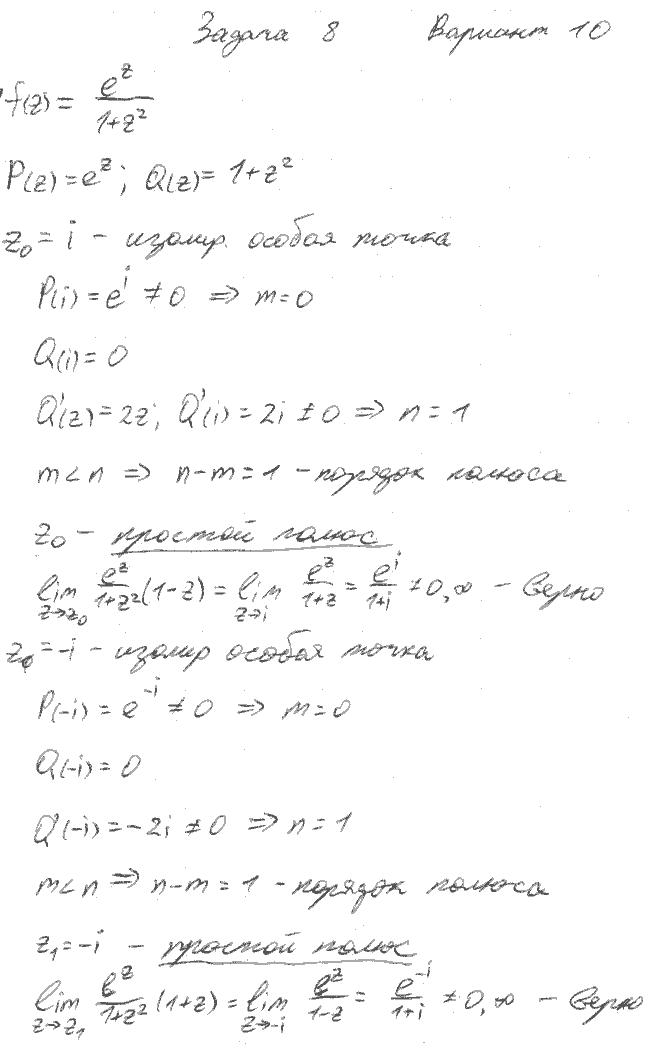 Задача 8 Вариант 10
f(z) = e^z / (1+z²)
P(z) = e^z; Q(z) = 1+z²
z₀ = i – изолир. особая точка
P(i) = e^i ≠ 0 ⇒ m=0
Q(i) = 0
Q'(z) = 2z; Q'(i) = 2i ≠ 0 ⇒ n = 1
m < n ⇒ n-m = 1 – порядок полюса
z₀ – простой полюс
lim_{z→z₀} e^z/(1+z²) (1-z) = lim_{z→i} e^z/(1+z) = e^i/(1+i) ≠ 0, ∞ – верно
z₀ = -i – изолир особая точка
P(-i) = e^{-i} ≠ 0 ⇒ m=0
Q(-i) = 0
Q'(-i) = -2i ≠ 0 ⇒ n = 1
m < n ⇒ n-m = 1 – порядок полюса
z₁ = -i – простой полюс
lim_{z→z₁} e^z/(1+z²) (1+z) = lim_{z→-i} e^z/(1-z) = e^{-i}/(1+i) ≠ 0, ∞ – верно